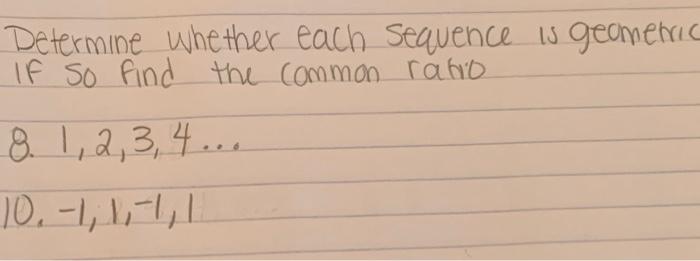 Determine whether each sequence is geometric
If so find the common ratio
8. 1, 2, 3, 4...
10. -1, 1, -1, 1